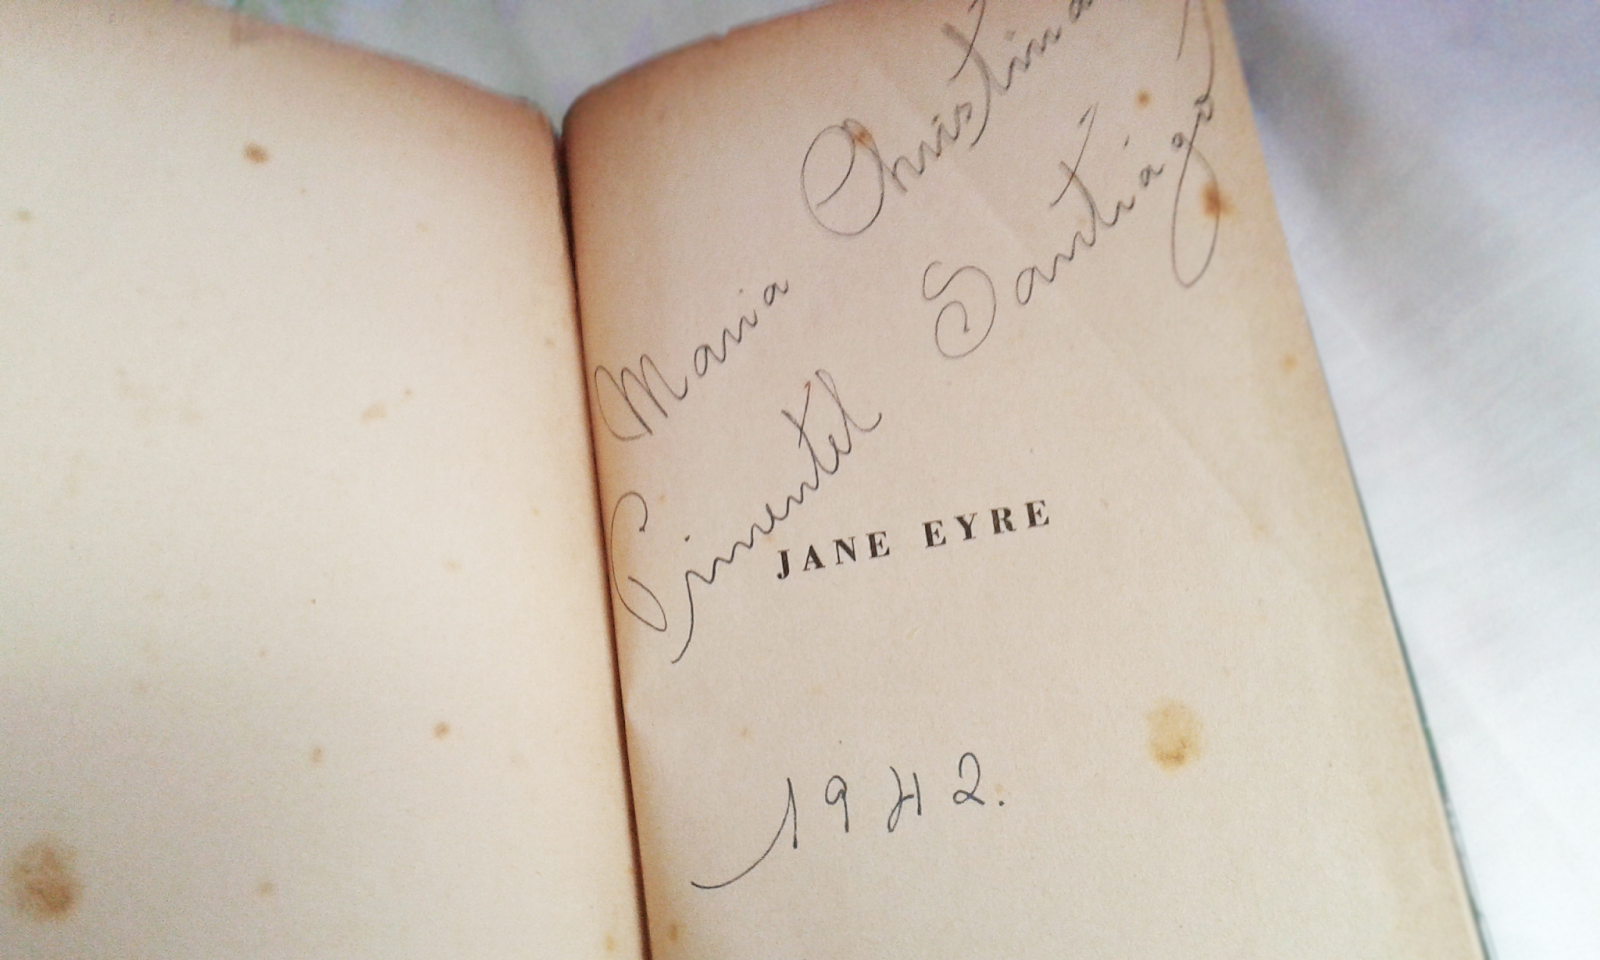 Maria Christina
Pimentel Santiago
JANE EYRE
1942.